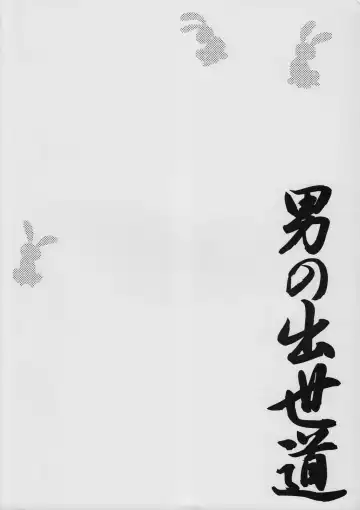 男の出世道